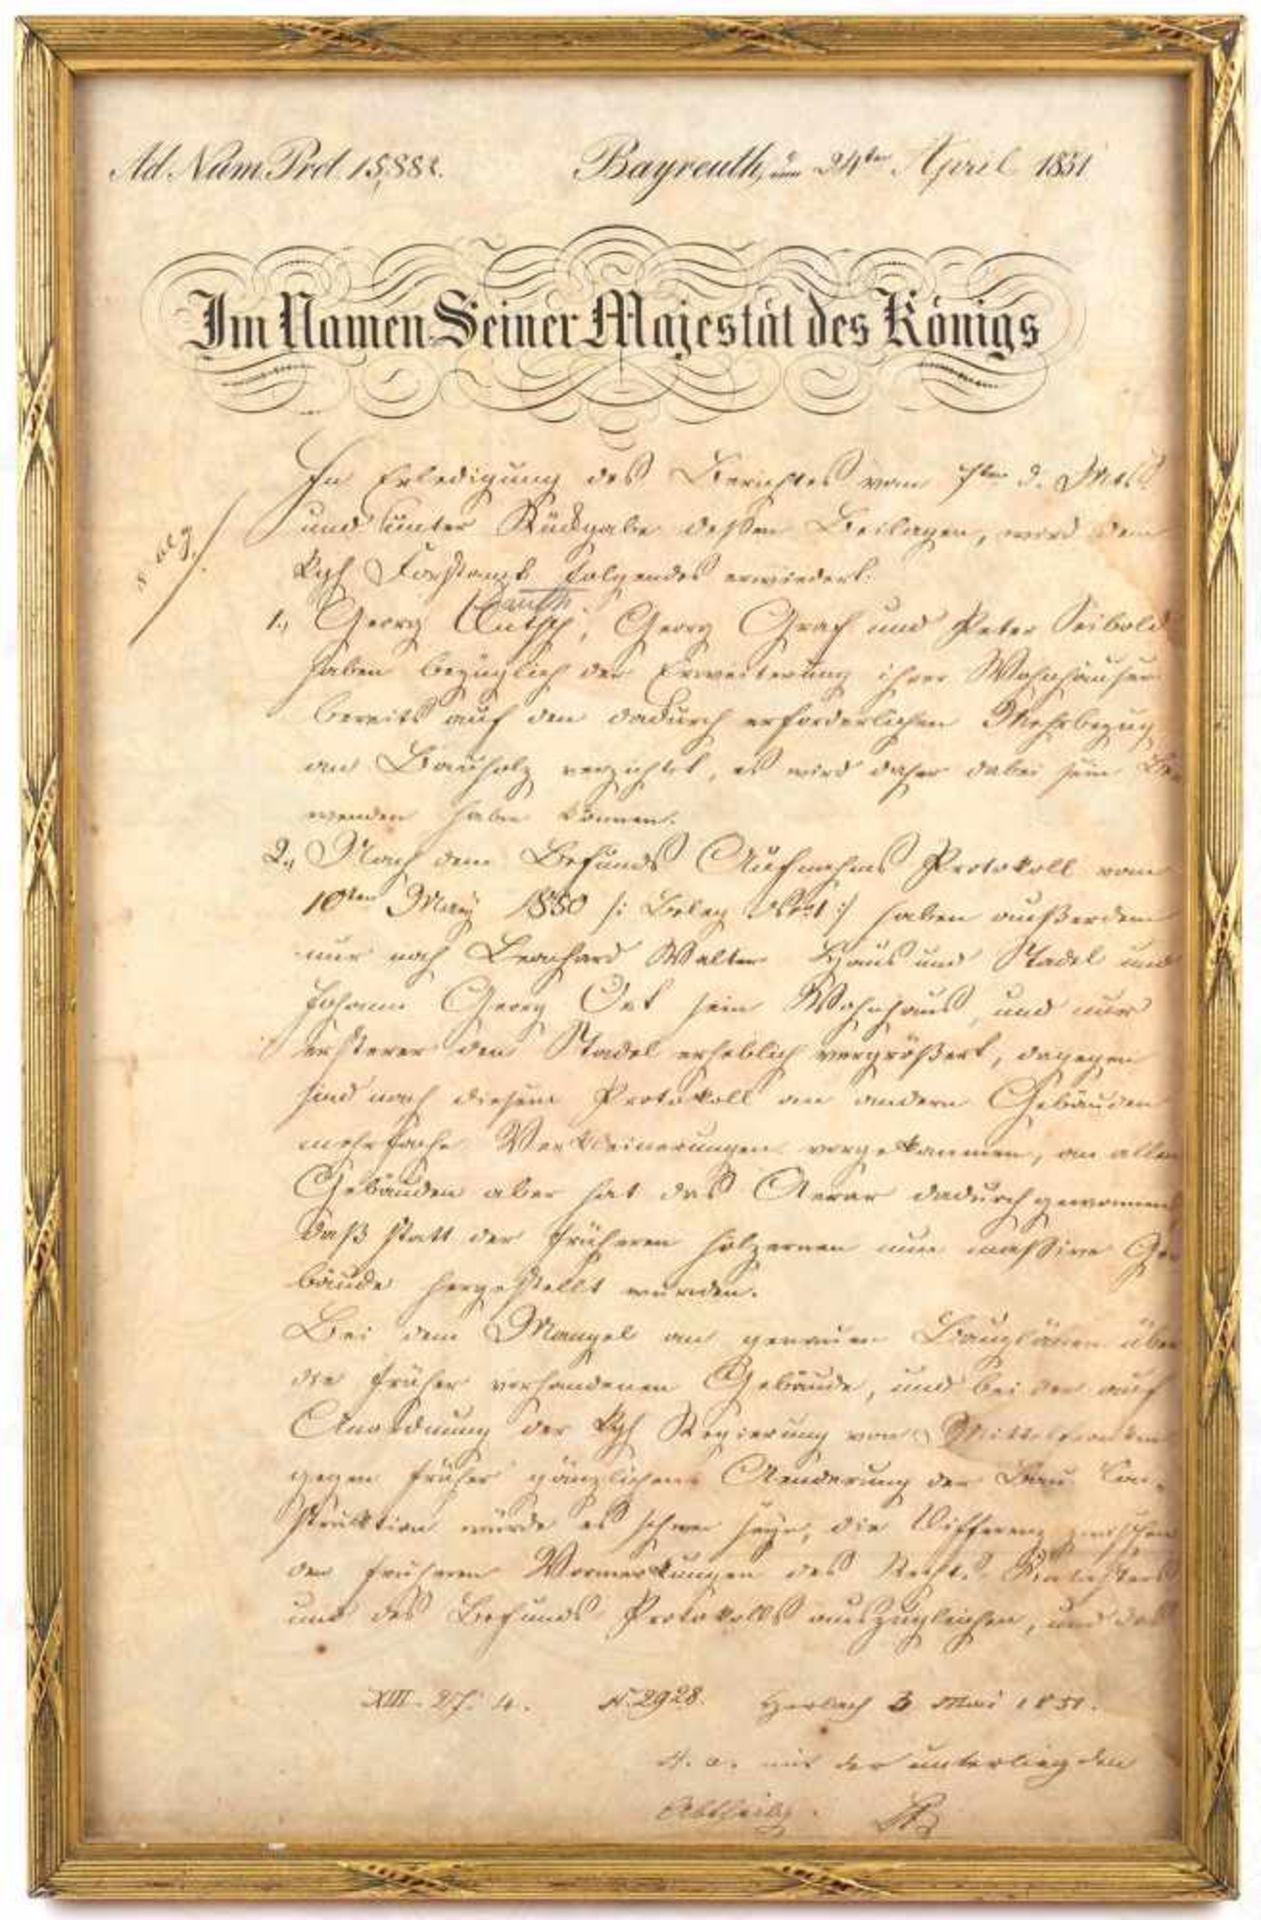 Ad. Num. Prot. 15,882. Bayreuth, den 24ten April 1851
Im Namen Seiner Majestät des Königs
In Erledigung des Berichtes vom 7ten d. Mts.
und unter Rückgabe dessen Beilagen, wird dem
Kgl Forstamt folgendes erwiedert.
1., Georg Georg Graf und Peter Seibold
haben bezüglich der Erweiterung ihrer Wohnhäuser
bereits auf den dadurch erforderlichen Mehrbezug
an Bauholz verzichtet, es wird daher dabei sein Be
wenden haben können.
2., Nach dem Befunds Aufnahms Protokoll vom
10ten May 1850 /: Beleg :/ haben außerdem
nur noch Leonhard Walter Haus und Stadel und
Johann Georg Ott sein Wohnhaus, und nur
ersterer den Stadel erheblich vergrößert, dagegen
sind nach diesem Protokoll an andern Gebäuden
mehrfache Verkleinerungen vorgekommen, an allen
Gebäuden aber hat das Aerar dadurch gewonnen,
daß statt der früheren hölzernen nun massive Ge
bäude hergestellt wurden.
Bei dem Mangel an genauen Bauplänen über
die früher vorhandenen Gebäude, und bei der auf
Anordnung der Kgl Regierung von Mittelfranken
gegen früher gänzlichen Aenderung der Bau Con-
struktion würde es schwer seyn, die Differenz zwischen
den früheren Vormerkungen des Rechts Katasters
und des Befunds Protokolls auszugleichen, und das
XIII. 27. 4. N. 2928. 3 Mai 1851.
mit der unterliegenden